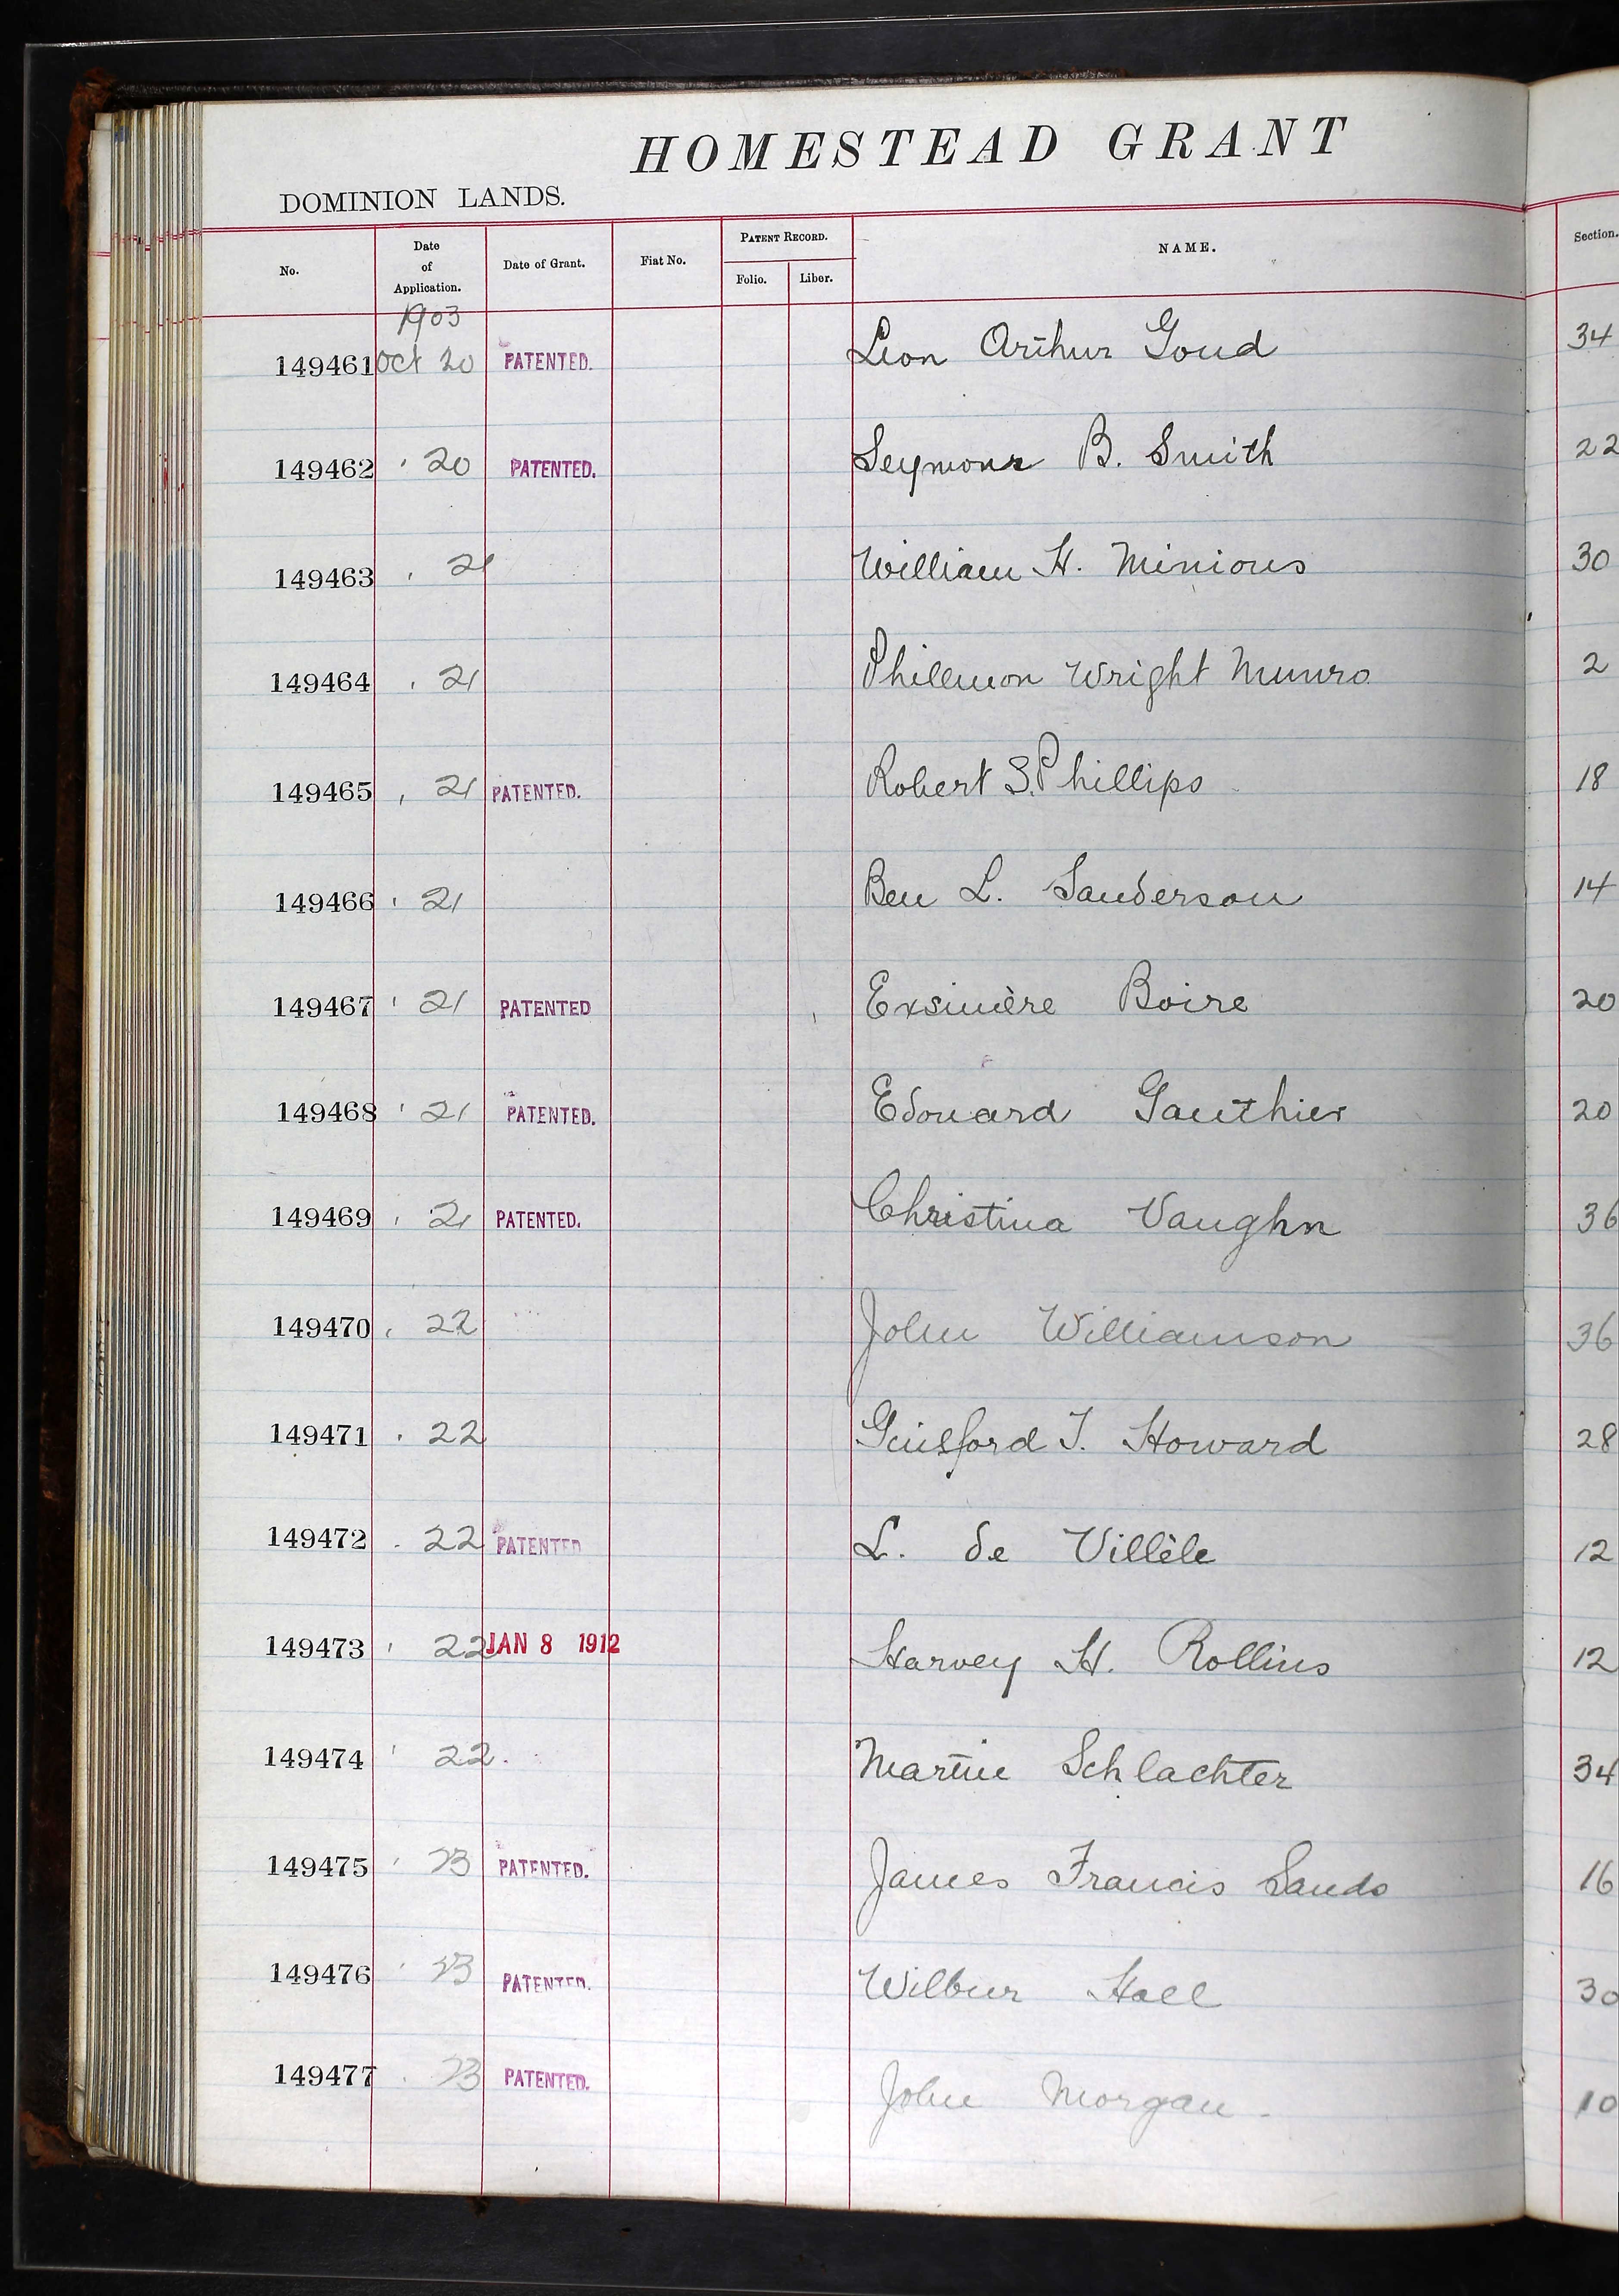 HOMESTEAD GRANT
DOMINION LANDS.
No. Date of Application. Date of Grant. Fiat No. PATENT RECORD. Folio. Liber. NAME. Section.
1903
149461 Oct 20 PATENTED. Leon Arthur Goud 34
149462 " 20 PATENTED. Seymour B. Smith 22
149463 " 21 William H. Minions 30
149464 " 21 Phillmon Wright Munro 2
149465 " 21 PATENTED. Robert S. Phillips 18
149466 " 21 Ben L. Sanderson 14
149467 " 21 PATENTED Exsimère Boire 20
149468 " 21 PATENTED. Edouard Gauthier 20
149469 " 21 PATENTED. Christina Vaughn 36
149470 " 22 John Williamson 36
149471 " 22 Guilford T. Howard 28
149472 " 22 PATENTED L. de Villèle 12
149473 " 22 JAN 8 1912 Harvey H. Rollins 12
149474 " 22. Martin Schlachter 34
149475 " 23 PATENTED. James Francis Sands 16
149476 " 23 PATENTED. Wilbur Hall 30
149477 " 23 PATENTED. John Morgan 10